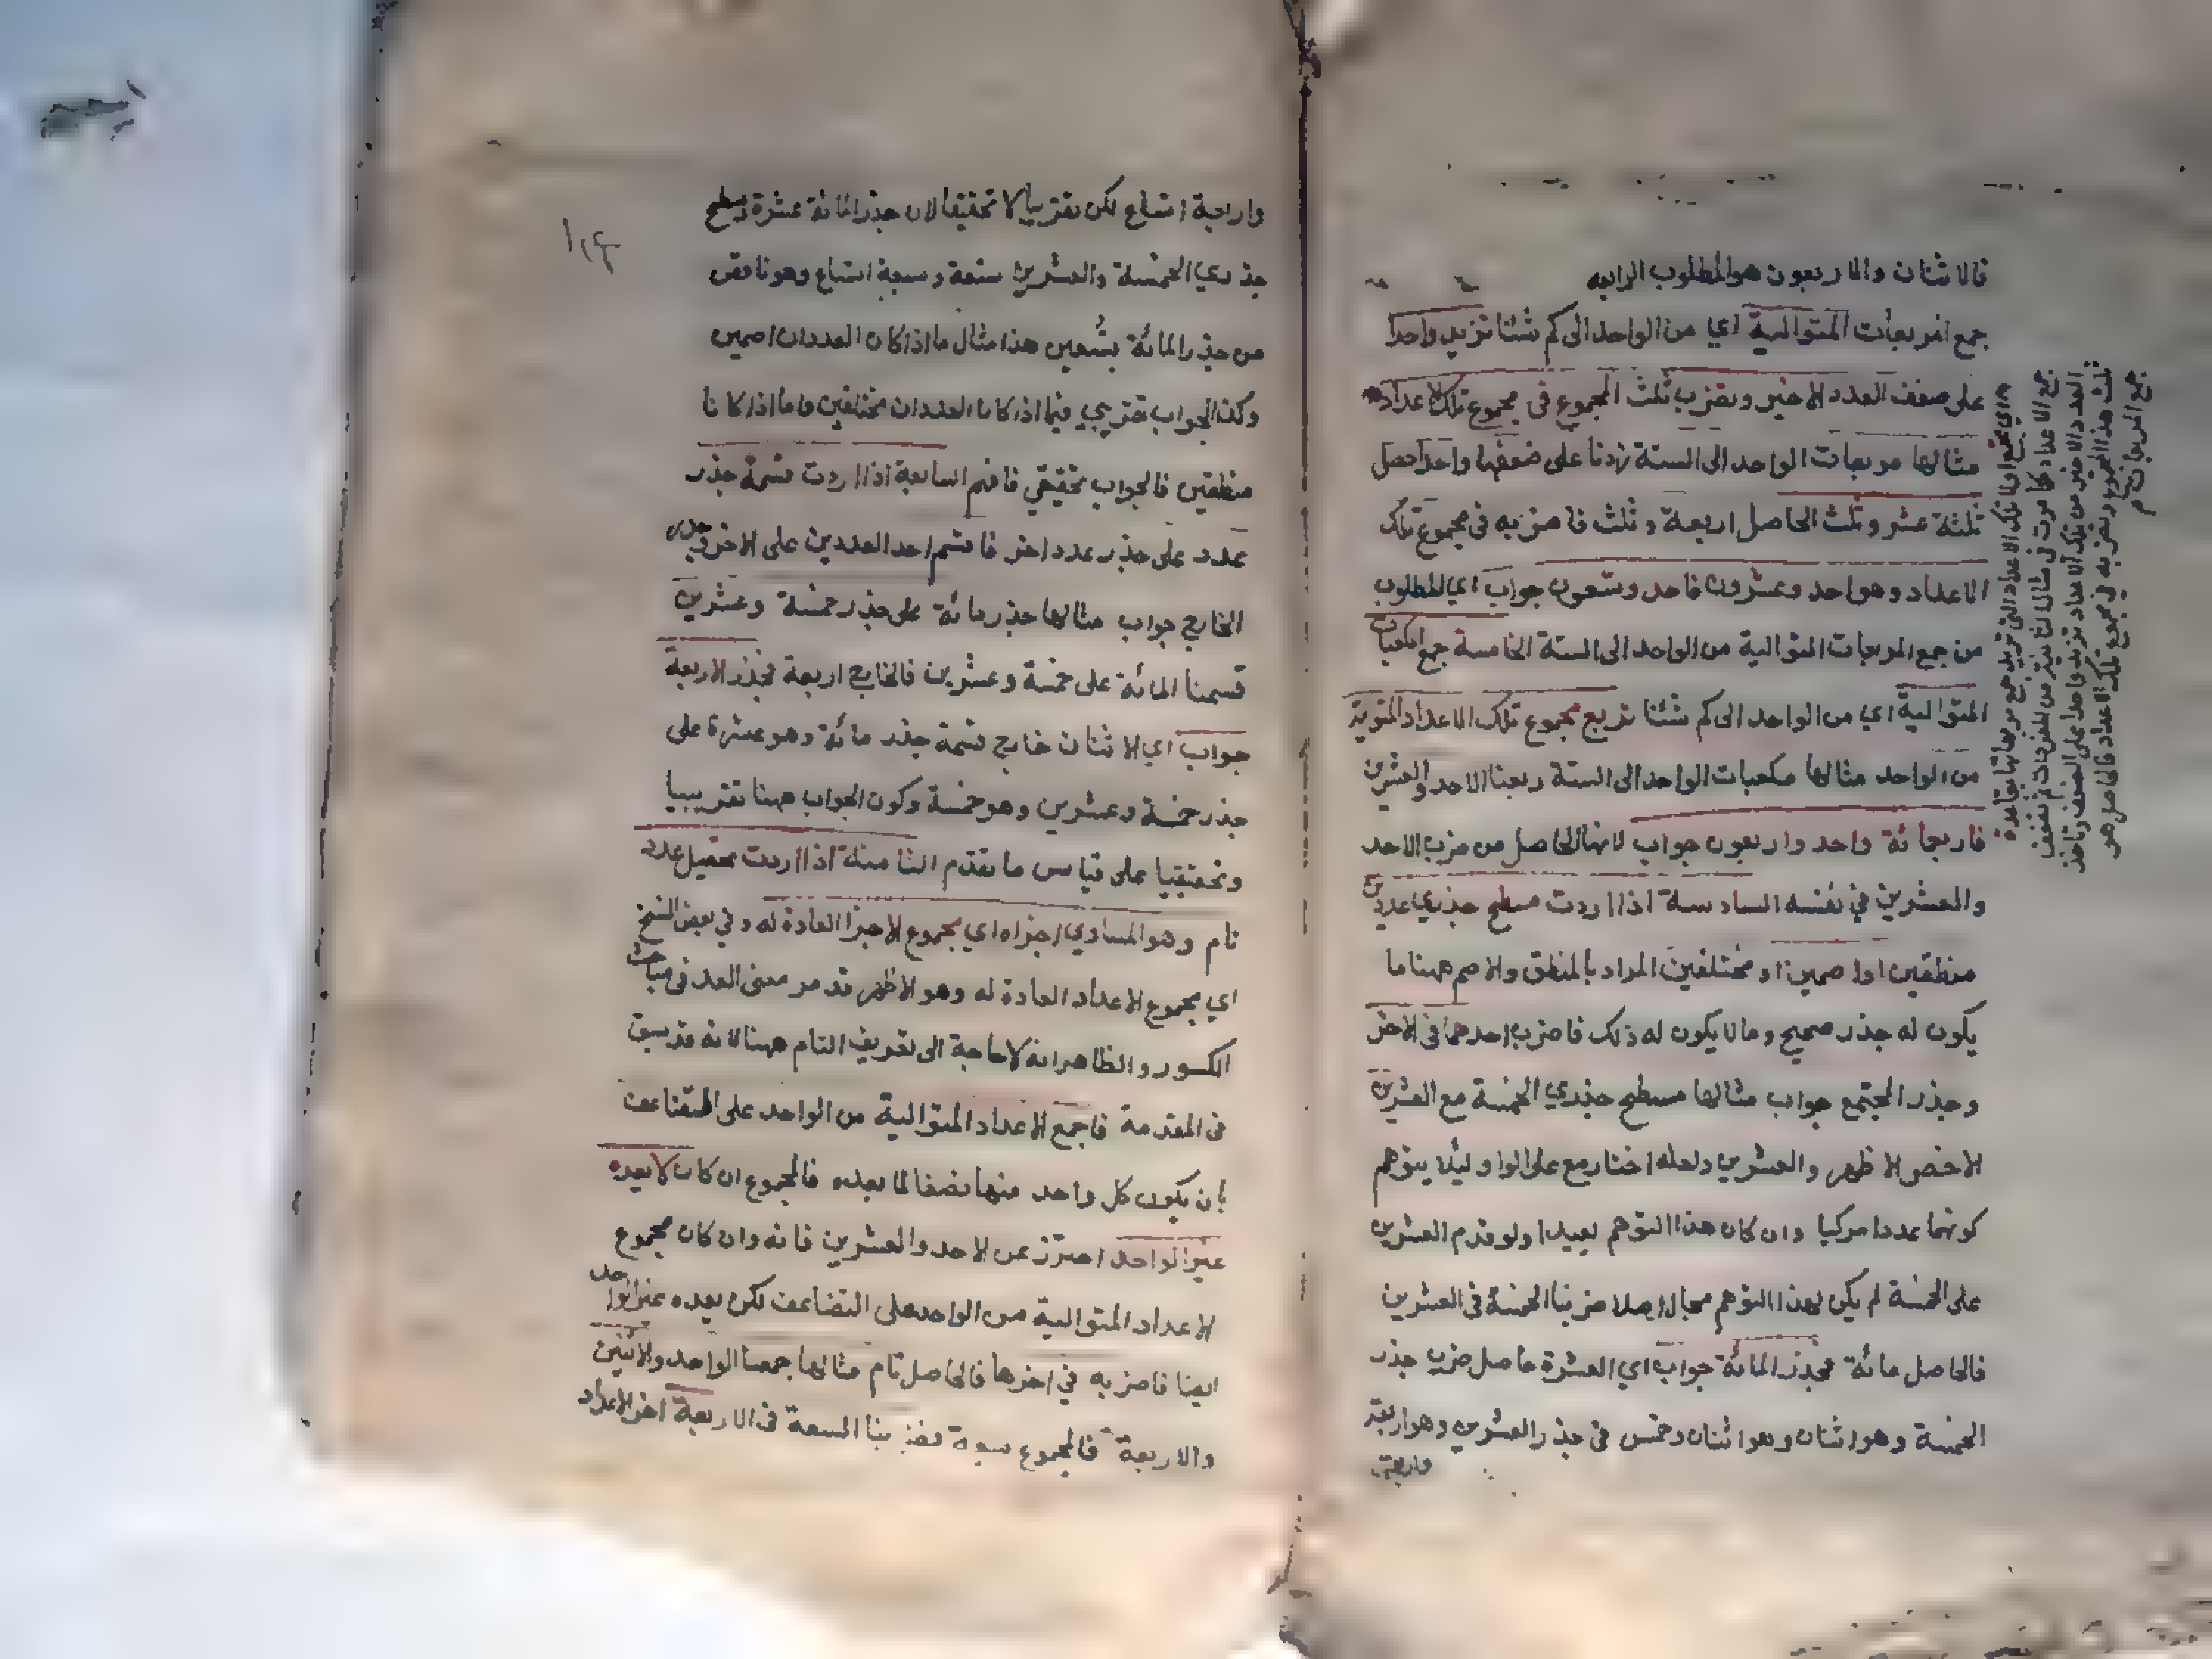 فالاثنان والاربعون هو المطلوب الرابعه
جمع المربعات المتوالية اي من الواحد الى كم شئنا تزيد واحدا
على ضعف العدد الاخير وتضرب ثلث المجموع في مجموع تلك الاعداد
مثالها مربعات الواحد الى الستة زدنا على ضعفها واحدا حصل
ثلثة عشر وثلث الحاصل اربعة وثلث فاضربه في مجموع تلك
الاعداد وهو احد وعشرون فاحد وتسعون جواب اي المطلوب
من جمع المربعات المتوالية من الواحد الى الستة الخامسة جمع المكعبات
المتوالية اي من الواحد الى كم شئنا تربع مجموع تلك الاعداد المتوالية
من الواحد مثالها مكعبات الواحد الى الستة ربعنا الاحد والعشرين
فاربعمائة واحد واربعون جواب لانها الحاصل من ضرب الاحد
والعشرين في نفسه السادسة اذا اردت مسطح جذري عددين
منطقين او اصمين او مختلفين المراد بالمنطق والاصم ههنا ما
يكون له جذر صحيح وما لا يكون له ذلك فاضرب احدهما في الاخر
وجذر المجتمع جواب مثالها مسطح جذري الخمسة مع العشرين
الاخصر الاظهر والعشرين ولعله اختار مع على الواو ليلا يتوهم
كونهما عددا مركبا وان كان هذا التوهم بعيدا ولو قدم العشرين
على الخمسة لم يكن لهذا التوهم مجال اصلا ضربنا الخمسة في العشرين
فالحاصل مائة فجذر المائة جواب اي العشرة حاصل ضرب جذر
الخمسة وهو اثنان وهو اثنان وخمس في جذر العشرين وهو اربعة
واربعة
جمع الاعداد كما مرت في مثال
العدد الاخير من تلك الاعداد تزيد واحدا على الضعف وتاخذ
ثلث هذا المجموع وتضربه في مجموع تلك الاعداد فالحاصل هو
جمع المربعات تم
واربعة اتساع لكن تقريبا لا تحقيقا لان جذر المائة عشرة ومسطح
جذري الخمسة والعشرين تسعة وسبعة اتساع وهو ناقص
من جذر المائة بتسعين هذا مثال ما اذا كان العددان اصمين
وكذا الجواب تقريبي فيما اذا كان العددان مختلفين واما اذا كانا
منطقين فالجواب تحقيقي فافهم السابعة اذا اردت قسمة جذر
عدد على جذر عدد اخر فاقسم احد العددين على الاخر وجذر
الخارج جواب مثالها جذر مائة على جذر خمسة وعشرين
قسمنا المائة على خمسة وعشرين فالخارج اربعة فجذر الاربعة
جواب اي الاثنان خارج قسمة جذر مائة وهو عشرة على
جذر خمسة وعشرين وهو خمسة وكون الجواب ههنا تقريبيا
وتحقيقيا على قياس ما تقدم الثامنة اذا اردت تحصيل عدد
تام وهو المساوي اجزاه اي مجموع الاجزا العادة له وفي بعض النسخ
اي مجموع الاعداد العادة له وهو الاظهر قد مر معنى العد في مباحث
الكسور والظاهر انه لا حاجة الى تعريف التام ههنا لانه قد سبق
في المقدمة فاجمع الاعداد المتوالية من الواحد على التضاعف
بان يكون كل واحد منها نصفا لما بعده فالمجموع ان كان لا يعده
غير الواحد احترز عن الاحد والعشرين فانه وان كان مجموع
الاعداد المتوالية من الواحد على التضاعف لكن يعده غير الواحد
ايضا فاضربه في اخرها فالحاصل تام مثالها جمعنا الواحد والاثنين
والاربعة فالمجموع سبعة فضربنا السبعة في الاربعة اخر الاعداد